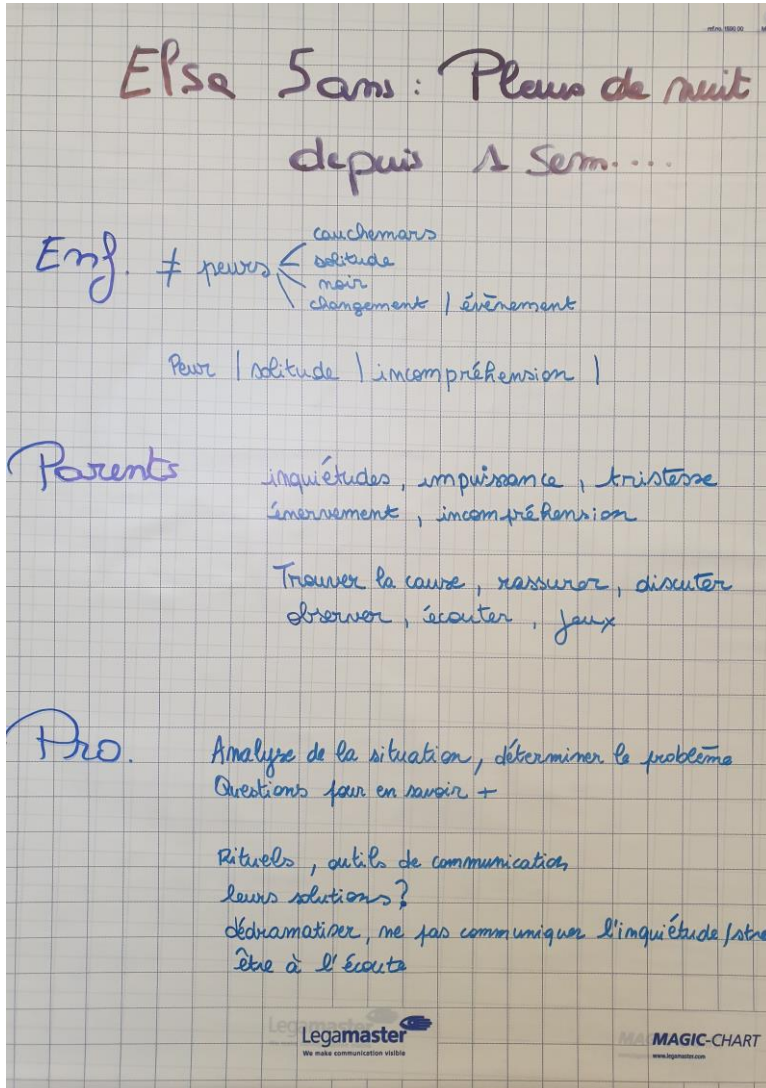 ref.no. 1590 00
Elsa 5 ans : Pleurs de nuit
depuis 1 sem....
Enf. ≠ peurs
cauchemars
solitude
noir
changement / évènement
Peur / solitude / incompréhension /
Parents inquiétudes, impuissance, tristesse
énervement, incompréhension
Trouver la cause, rassurer, discuter
observer, écouter, jeux
Pro. Analyse de la situation, déterminer le problème
Questions pour en savoir +
Rituels, outils de communication
leurs solutions?
dédramatiser, ne pas communiquer l'inquiétude/stre
être à l'écoute
Legamaster
We make communication visible
MAGIC-CHART
www.legamaster.com